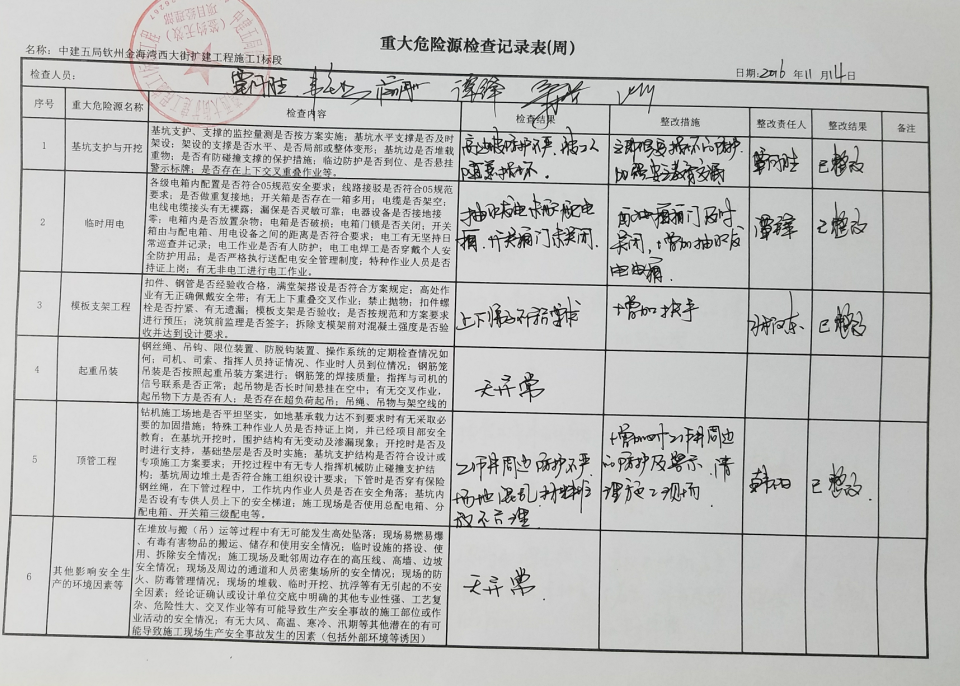 重大危险源检查记录表(周)
名称：中建五局钦州金海湾西大街扩建工程施工1标段
日期：2016年11月14日
检查人员：
序号 重大危险源名称 检查内容 检查结果 整改措施 整改责任人 整改结果 备注
1 基坑支护与开挖
基坑支护、支撑的监控量测是否按方案实施；基坑水平支撑是否及时
架设；架设的支撑是否水平、是否局部或整体变形；基坑边是否堆载
重物；是否有防碰撞支撑的保护措施；临边防护是否到位、是否悬挂
警示标牌；是否存在上下交叉重叠作业等。
已整改
2 临时用电
各级电箱内配置是否符合05规范安全要求；线路接驳是否符合05规范
要求；是否做重复接地；开关箱是否存在一箱多用；电缆是否架空；
电线电缆接头有无裸露；漏保是否灵敏可靠；电器设备是否接地接
零；电箱内是否放置杂物；电箱是否破损；电箱门锁是否关闭；开关
箱由与配电箱、用电设备之间的距离是否符合要求；电工有无坚持日
常巡查并记录；电工作业是否有人防护；电工电焊工是否穿戴个人安
全防护用品；是否严格执行送配电安全管理制度；特种作业人员是否
持证上岗；有无非电工进行电工作业。
箱，开关箱门未关闭．
已整改
3 模板支架工程
扣件、钢管是否经验收合格，满堂架搭设是否符合方案规定；高处作
业有无正确佩戴安全带；有无上下重叠交叉作业；禁止抛物；扣件螺
栓是否拧紧、有无遗漏；模板支架是否验收；是否按规范和方案要求
进行预压；浇筑前监理是否签字；拆除支模架前对混凝土强度是否验
收并达到设计要求。
增加扶手
已整改
4 起重吊装
钢丝绳、吊钩、限位装置、防脱钩装置、操作系统的定期检查情况如
何；司机、司索、指挥人员持证情况、作业时人员到位情况；钢筋笼
吊装是否按照起重吊装方案进行；钢筋笼的焊接质量；指挥与司机的
信号联系是否正常；起吊物是否长时间悬挂在空中；有无交叉作业，
起吊物下方是否有人；是否存在超负荷起吊；吊绳、吊物与架空线的
无异常
5 顶管工程
钻机施工场地是否平坦坚实，如地基承载力达不到要求时有无采取必
要的加固措施；特殊工种作业人员是否持证上岗，并已经项目部安全
教育；在基坑开挖时，围护结构有无变动及渗漏现象；开挖时是否及
时进行支持，基础垫层是否及时实施；基坑支护结构是否符合设计或
专项施工方案要求；开挖过程中有无专人指挥机械防止碰撞支护结
构；基坑周边堆土是否符合施工组织设计要求；下管时是否穿有保险
钢丝绳，在下管过程中，工作坑内作业人员是否在安全角落；基坑内
是否设有专供人员上下的安全梯道；施工现场是否使用总配电箱、分
配电箱、开关箱三级配电等。
工作井周边防护不严
场地混乱，材料堆
放不合理
增加对工作井周边
的防护及警示，清
理施工现场
已整改．
6 其他影响安全生
产的环境因素等
在堆放与搬（吊）运等过程中有无可能发生高处坠落；现场易燃易爆
、有毒有害物品的搬运、储存和使用安全情况；临时设施的搭设、使
用、拆除安全情况；施工现场及毗邻周边存在的高压线、高墙、边坡
安全情况；现场及周边的通道和人员密集场所的安全情况；现场的防
火、防毒管理情况；现场的堆载、临时开挖、抗浮等有无引起的不安
全因素；经论证确认或设计单位交底中明确的其他专业性强、工艺复
杂、危险性大、交叉作业等有可能导致生产安全事故的施工部位或作
业活动的安全情况；有无大风、高温、寒冷、汛期等其他潜在的有可
能导致施工现场生产安全事故发生的因素（包括外部环境等诱因）
无异常．